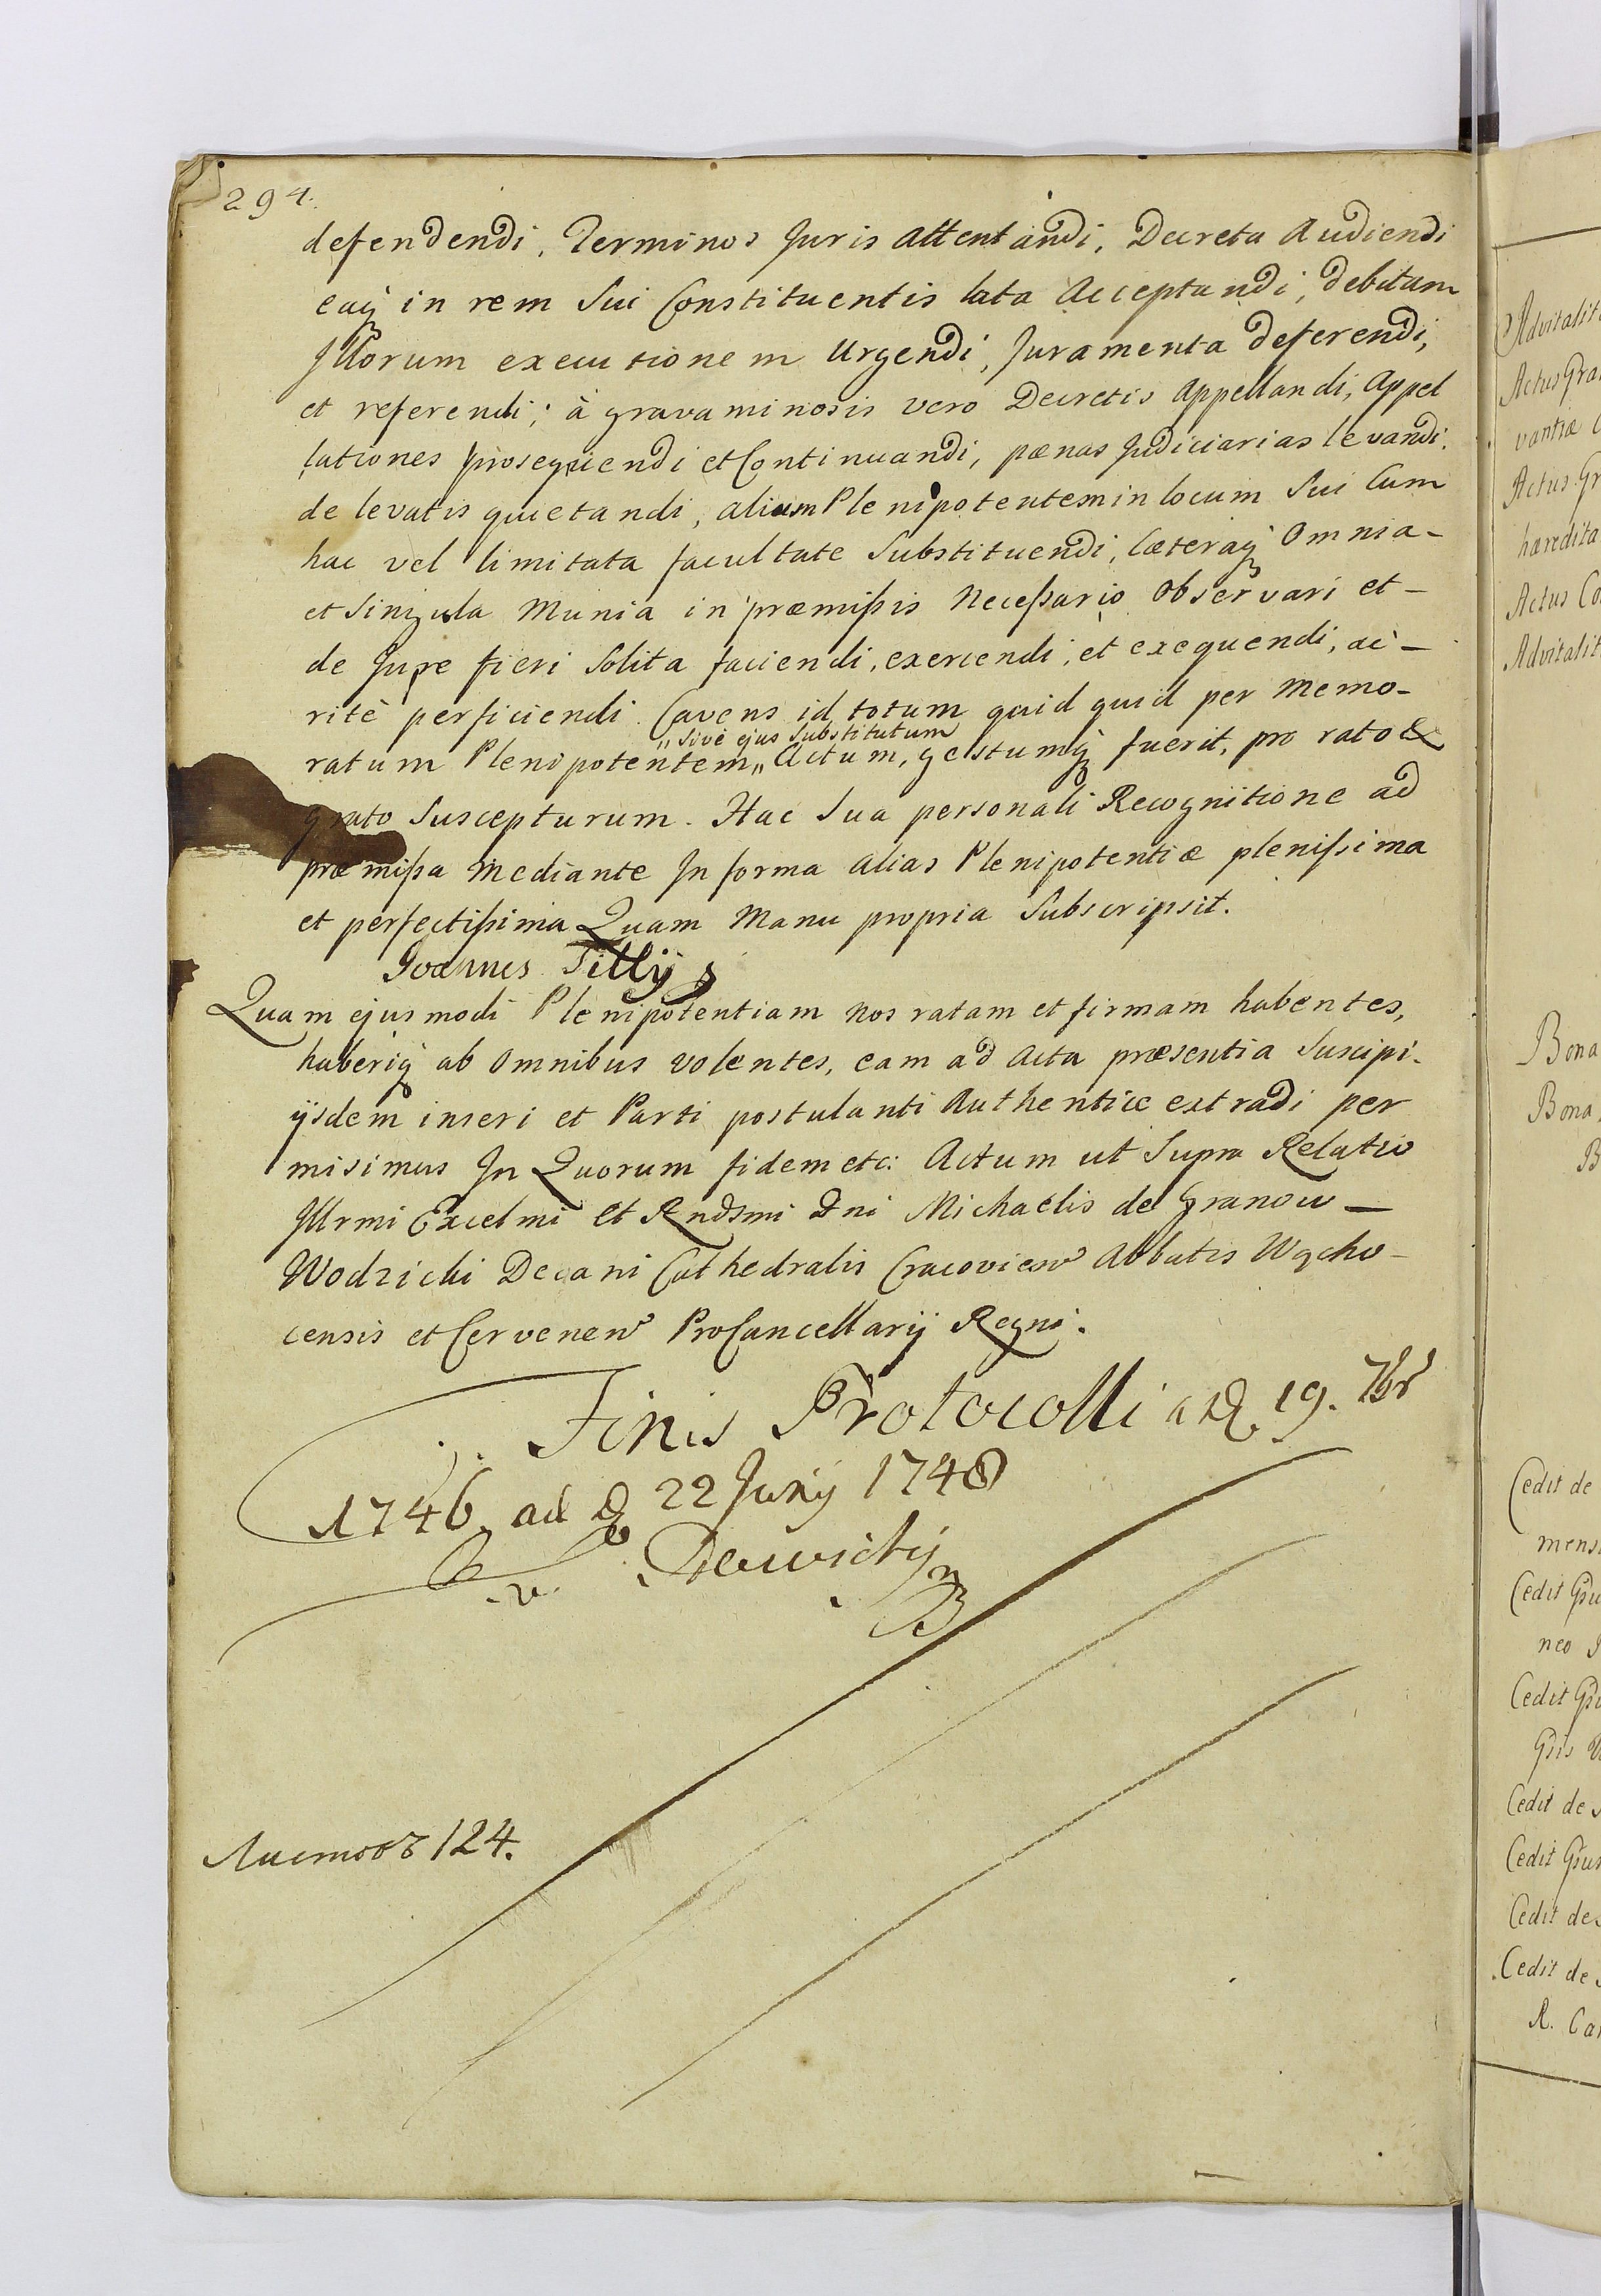 294.
defendendi, Terminos Juris attentandi, Decreta Audiendi
eaq́ in rem Sui Constituentis lata Acceptandi, debitam
Illorum executionem Urgendi, Juramenta deferendi,
et referendi; à gravaminosis vero Decretis Appellandi, Appel
lationes prosequendi et Continuandi, pœnas Judiciarias levandi.
de levatis quietandi, alium Plenipotentem in locum Sui Cum
hac vel limitata facultate Substituendi, Cæteraq́ Omnia -
et Singula Munia in præmißis Neceßario Observari et -
de Jure fieri Solita faciendi, exercendi, et exequendi, ac -
ritè perficiendi. Cavens id totum quid quid per Memo-
„ Sivè ejus Substitutum
ratum Plenipotentem „ Actum, gestumq́ fuerit, pro rato &
grato Suscepturum. Hac Sua personali Recognitione ad
præmißa Mediante In forma alias Plenipotentiæ plenißima
et perfectißima Quam Manu propria Subscripsit.
Joannes Tilly
Quam ejusmodi Plenipotentiam Nos ratam et firmam habentes,
haberiq́ ab Omnibus volentes, eam ad Acta præsentia Suscipi.
ijsdem inseri et Parti postulanti Authenticè extradi per
misimus In Quorum fidem etc: Actum ut Supra Relatio
Illrmi Excelmi et Rndsmi Dni Michaëlis de Granow -
Wodzicki Decani Cathedralis Cracovien Abbatis Wącho-
censis et Cervenen ProCancellarij Regni.
Finis Protocolli a D. 19. 7br
1746 ad D 22 Junij 1748
Листовъ 124.
Advitalit
Actus Gra
vantiæ
Actus Gr
hæredita
Actus Co
Advitalit
Bona
Bona
B
Cedit de
mens
Cedit
neo
Cedit
Cedit de
Cedit
Cedit de
Cedit de
R. Ca